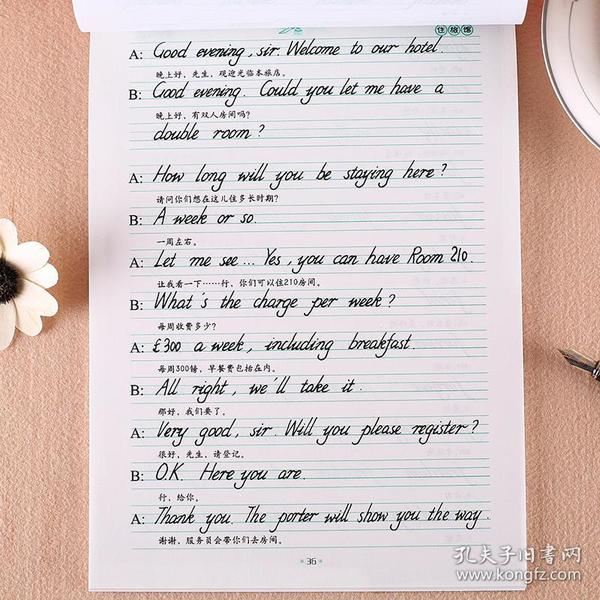 住旅馆
A: Good evening, sir. Welcome to our hotel.
晚上好，先生，欢迎光临本旅店。
B: Good evening. Could you let me have a
晚上好，有双人房间吗?
double room?
A: How long will you be staying here?
请问你们想在这儿住多长时期?
B: A week or so.
一周左右。
A: Let me see... Yes, you can have Room 210.
让我看一下……行，你们可以住210房间。
B: What's the charge per week?
每周收费多少?
A: £300 a week, including breakfast.
每周300镑，早餐费包括在内。
B: All right, we'll take it.
那好，我们要了。
A: Very good, sir. Will you please register?
很好，先生，请登记。
B: O.K. Here you are.
行，给你。
A: Thank you. The porter will show you the way.
谢谢，服务员会带你们去房间。
36
孔夫子旧书网
www.kongfz.com